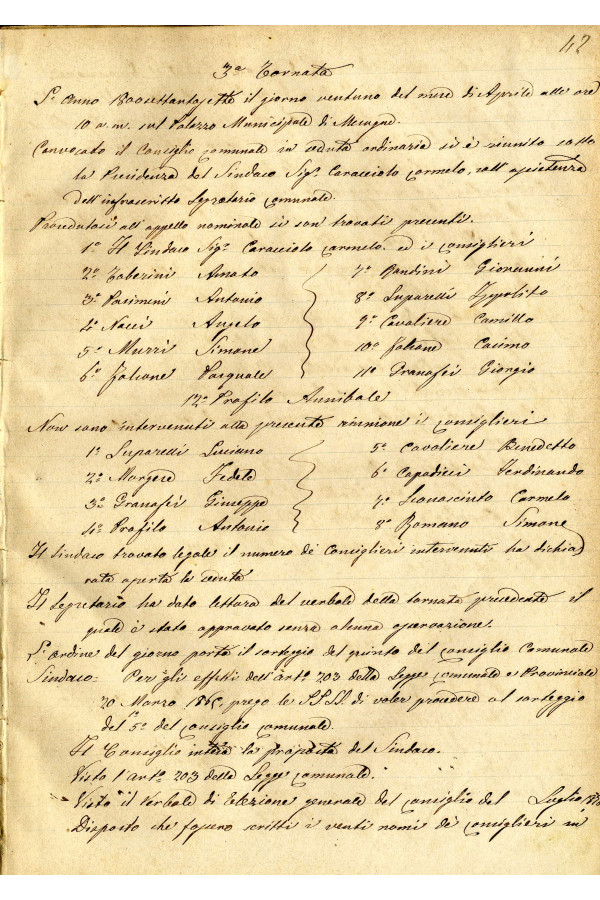 42
3ª Tornata
L'anno 1800settantasette il giorno ventuno del mese di Aprile alle ore
10 a.m. sul Palazzo Municipale di Mesagne.
Convocato il Consiglio comunale in seduta ordinaria si è riunito sotto
la Presidenza del Sindaco Sigr. Caracciolo Carmelo, coll'assistenza
dell'infrascritto Segretario Comunale.
Procedutosi all'appello nominale si son trovati presenti.
1º Il Sindaco Sigr. Caracciolo Carmelo, ed i Consiglieri
2º Taberini Amato 7º Bandini Giovanni
3º Pacimeni Antonio 8º Luparelli Ippolito
4º Nacci Angelo 9º Cavaliere Camillo
5º Murri Simone 10º Falcone Cosimo
6º Falcone Pasquale 11º Granafei Giorgio
12º Profilo Annibale
Non sono intervenuti alla presente riunione i Consiglieri
1º Luparelli Luciano 5º Cavaliere Benedetto
2º Fedele 6º Capodieci Ferdinando
3º Granafei Giuseppe 7º Carmelo
4º Profilo Antonio 8º Romano Simone
Il Sindaco trovato legale il numero dè Consiglieri intervenuti ha dichia
rata aperta la seduta
Il Segretario ha dato lettura del verbale della tornata precedente il
quale è stato approvato senza alcuna osservazione.
L'ordine del giorno porta il sorteggio del quinto del Consiglio Comunale
Sindaco= Per gli effetti dell'artº 203 della Legge Comunale e Provinciale
20 Marzo 1865, prego le SS.LL. di voler procedere al sorteggio
del 5º del Consiglio comunale.
Il Consiglio intesa la proposta del Sindaco.
Visto l'artº 203 della Legge Comunale.
Visto il Verbale di Elezione generale del Consiglio del Luglio
Disposto che fossero scritti i venti nomi dè Consiglieri in